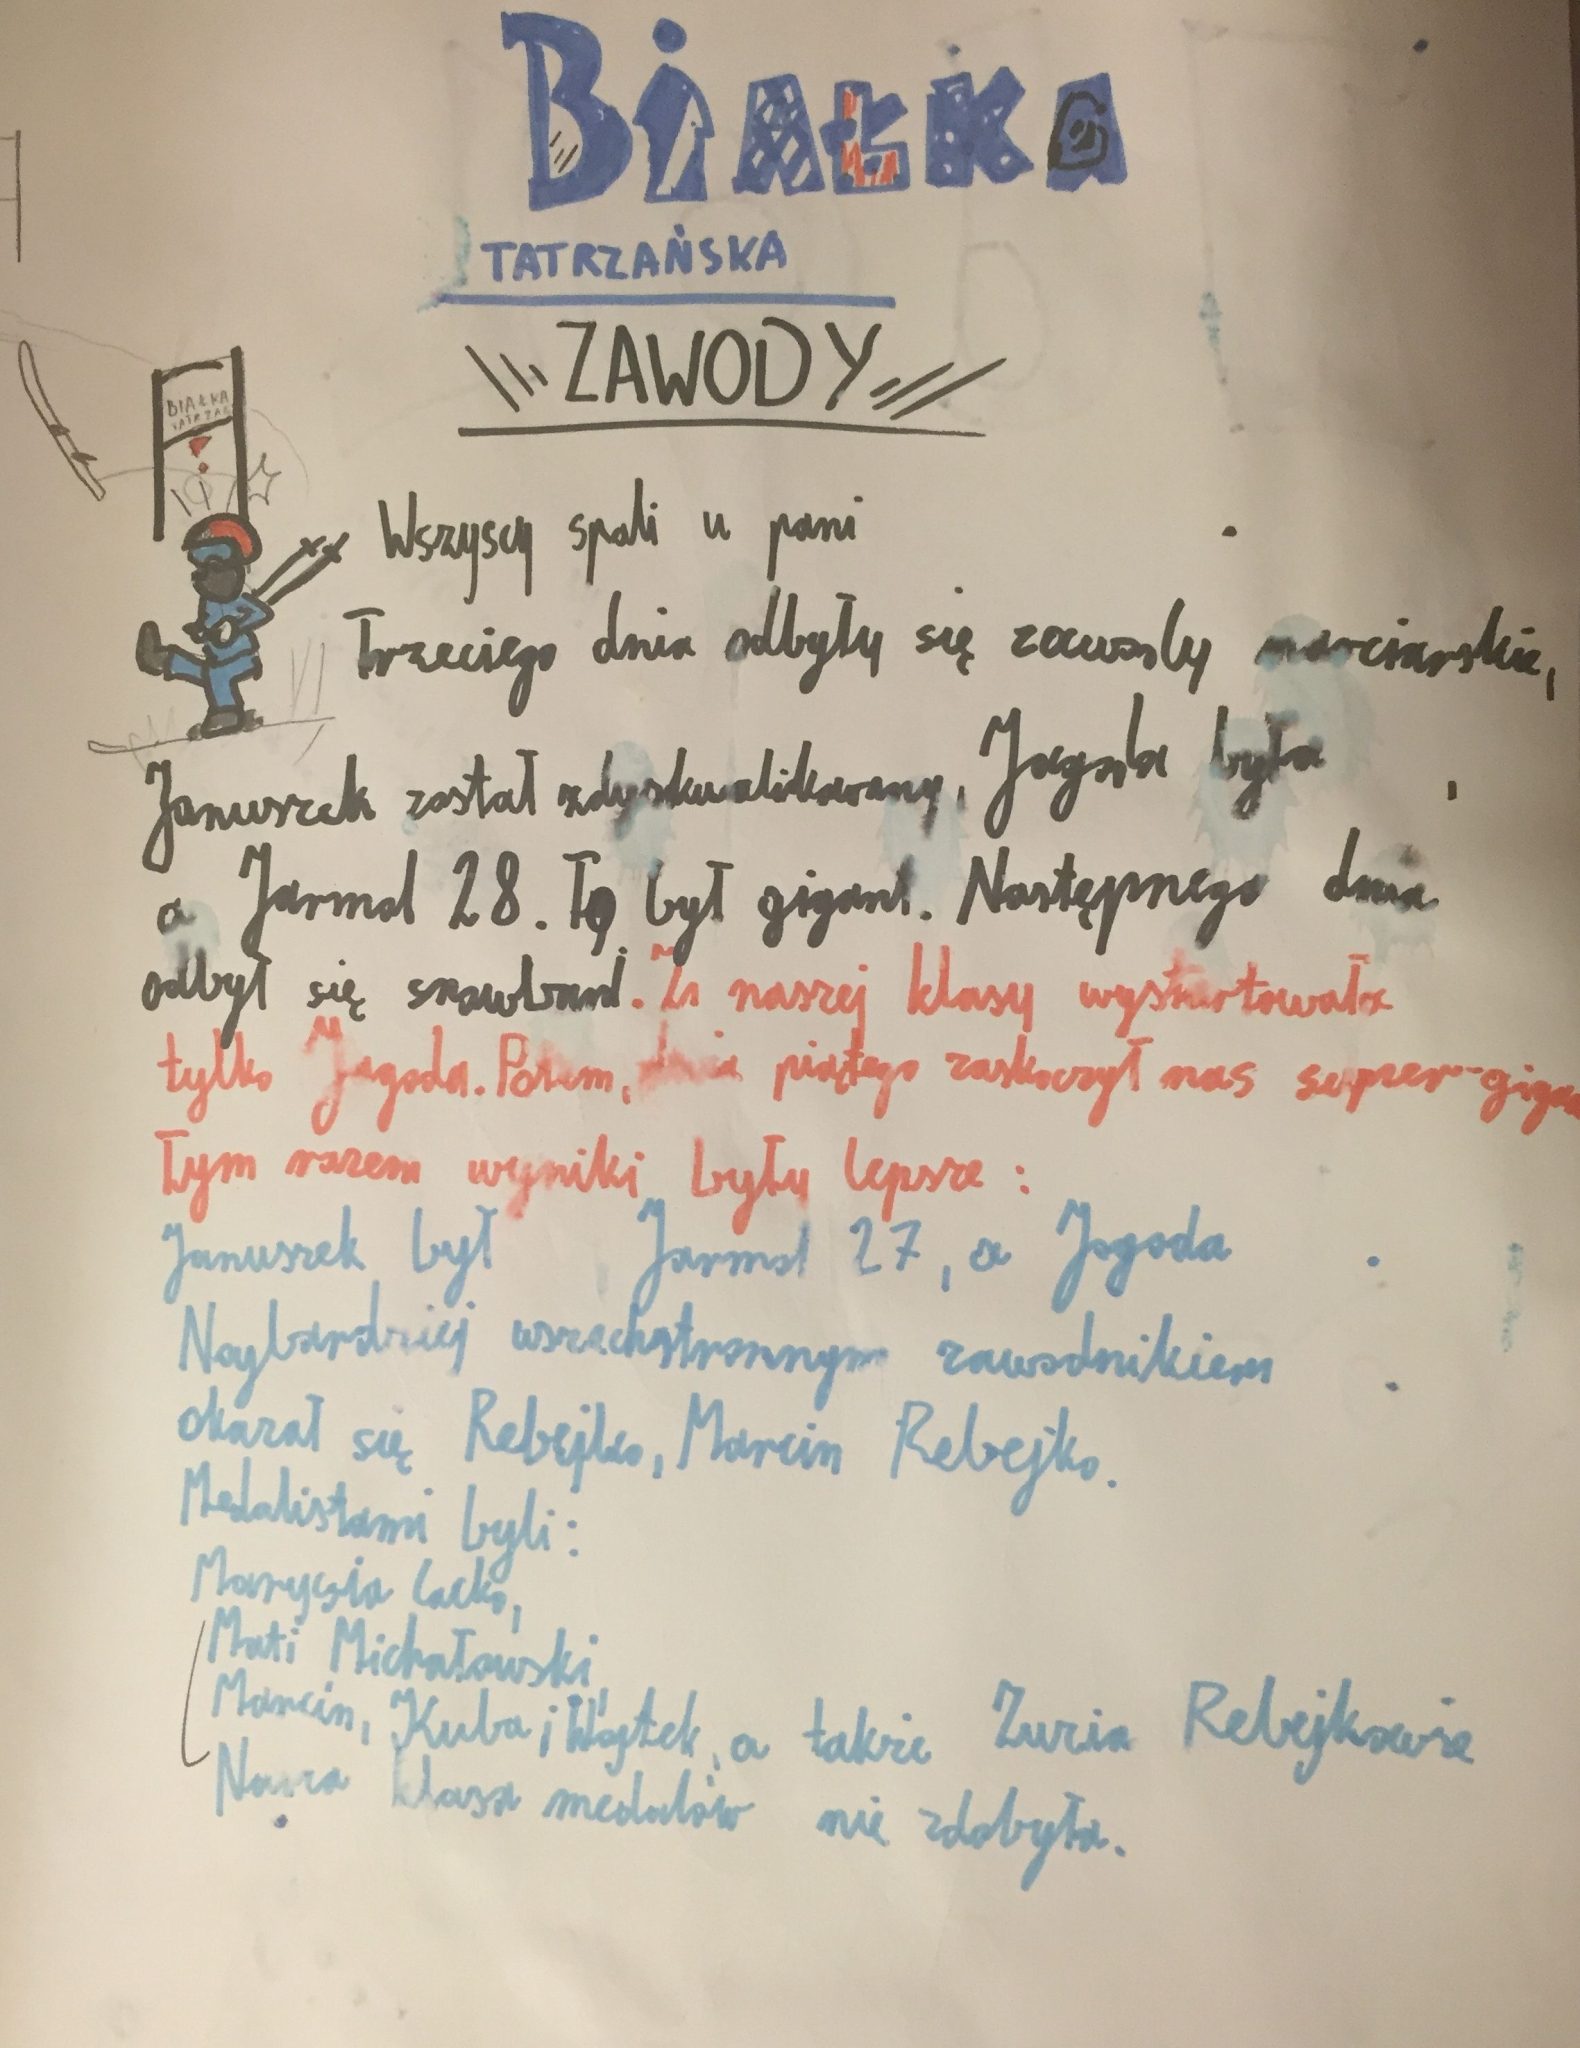 BIAŁKA
TATRZAŃSKA
ZAWODY
BIAŁKA
TATRZAŃ
Wszyscy spali u pani .
Trzeciego dnia odbyły się zawody narciarskie,
Januszek został zdyskwalikowany, Jagoda była ,
a Jarmol 28. To był gigant. Następnego dnia
odbył się snowband. Z naszej klasy wystartowała
tylko Jagoda. Potem, dnia piątego zaskoczył nas super-gigan
Tym razem wyniki były lepsze:
Januszek był Jarmol 27, a Jagoda .
Najbardziej wszechstronnym zawodnikiem
okazał się Rebejko, Marcin Rebejko.
Medalistami byli:
Marysia Lacko,
Mati Michałowski
Marcin, Kuba i Wojtek, a także Zuzia Rebejkowie
Nasza klasa medalów nie zdobyła.